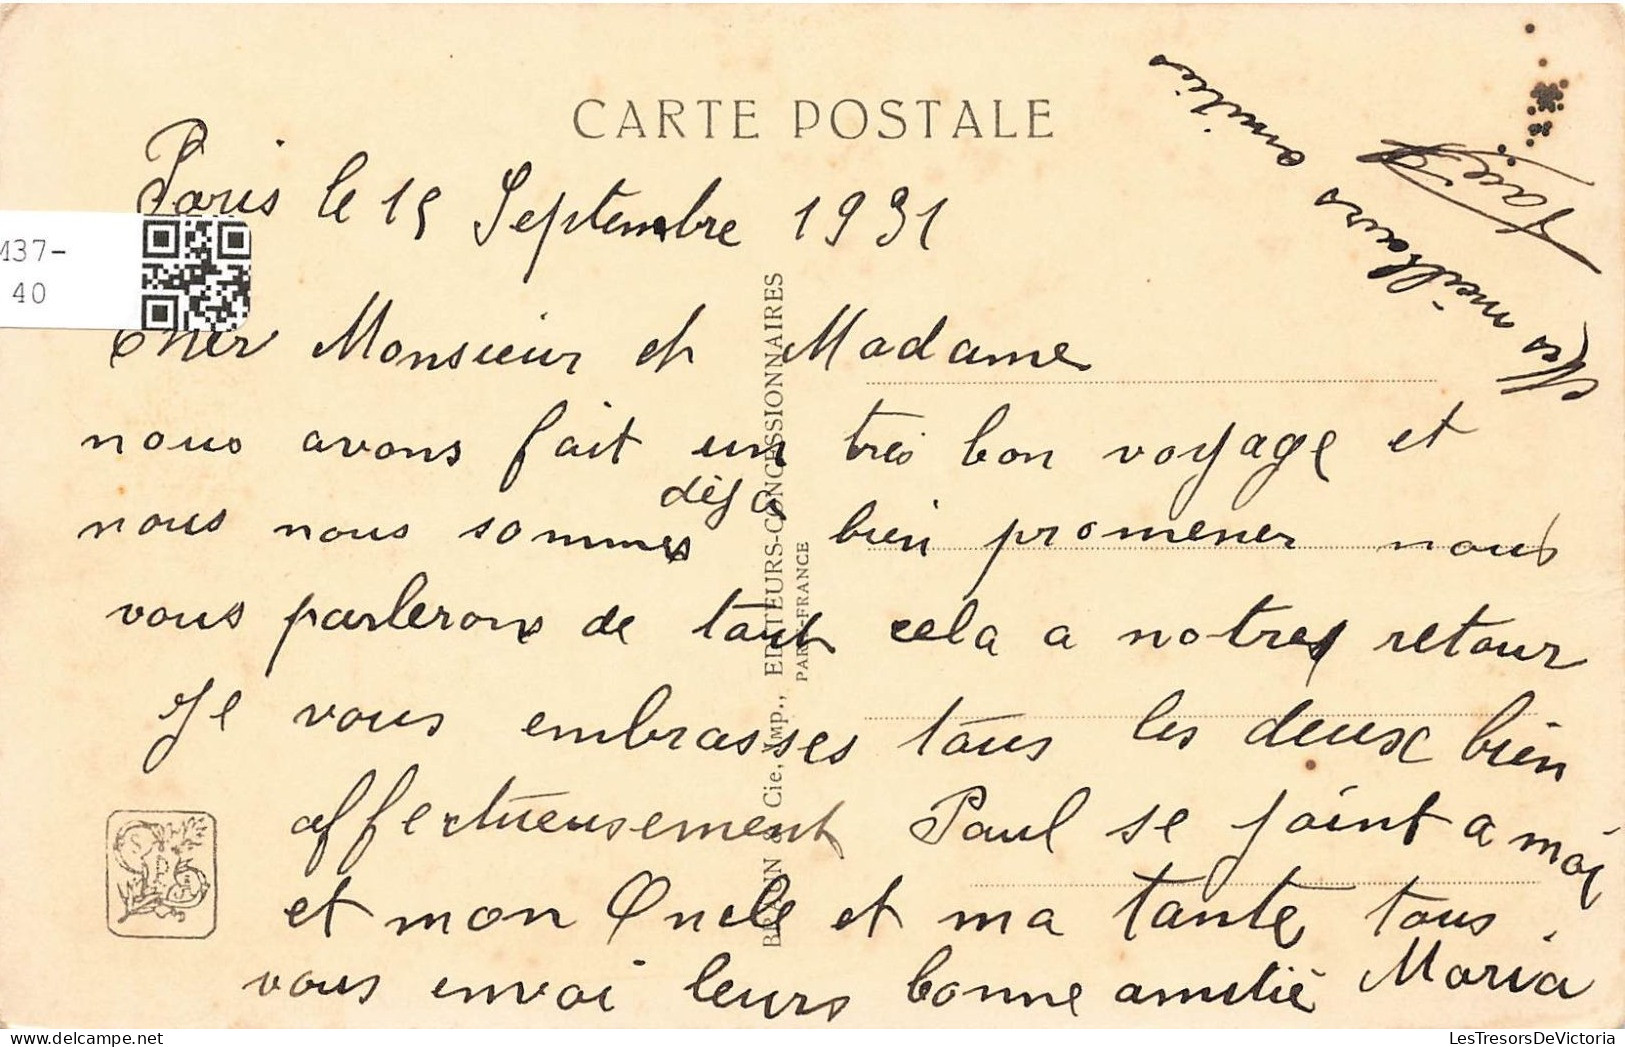 CARTE POSTALE
Paris le 15 Septembre 1931
Cher Monsieur et Madame
nous avons fait un très bon voyage et
nous nous sommes déja bien promener nous
vous parlerons de tout cela a notres retour
Je vous embrasses tous les deux bien
affectueusement Paul se joint a moi
et mon Oncle et ma tante tous
vous envoi leurs bonne amitié Maria
Mes meilleurs amitiés
BRAUN & Cie, Imp., EDITEURS-CONCESSIONNAIRES
PARIS-FRANCE
M37-
40
LesTresorsDeVictoria